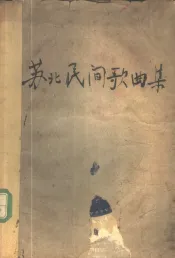 苏北民间歌曲集